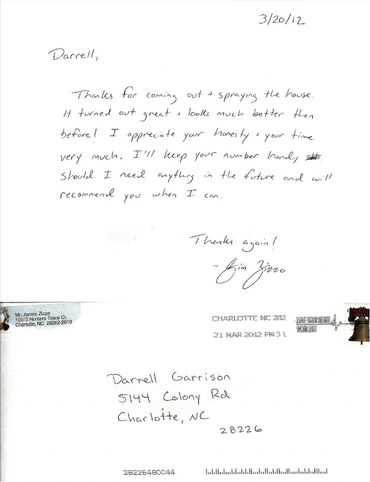 3/20/12
Darrell,
Thanks for coming out + spraying the house.
It turned out great + looks much better then
before! I appreciate your honesty + your time
very much. I'll keep your number handy
should I need anything in the future and will
recommend you when I can.
Thanks again!
- Jim Zizzo
Mr. James Zizzo
Charlotte, NC
CHARLOTTE NC 282
21 MAR 2012 PM 3 L
Darrell Garrison
5144 Colony Rd
Charlotte, NC
28226
28226480044